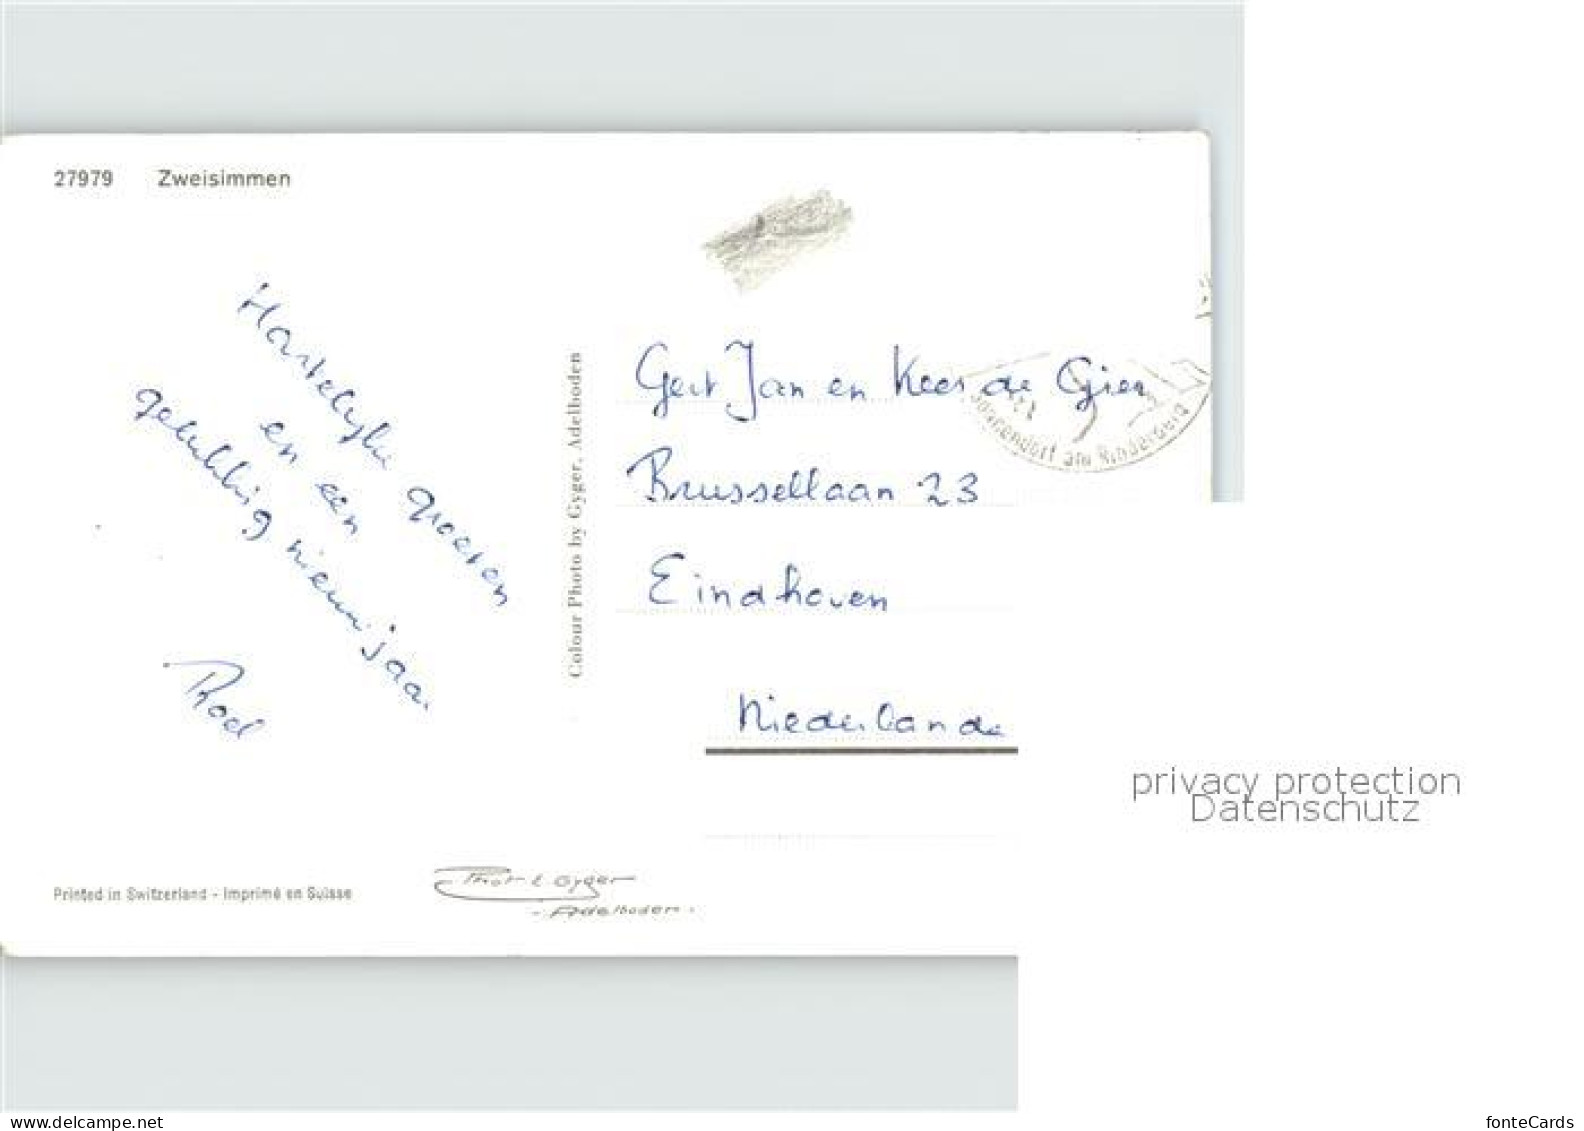 27979 Zweisimmen
Hartelyke groeten
en een
gelukkig nieuwjaar
Roel
Colour Photo by Gyger, Adelboden
Gert Jan en Kees de Gier
Brussellaan 23
Eindhoven
Niederlande
am Rinderberg
Printed in Switzerland - Imprimé en Suisse
Phot. E. Gyger
Adelboden.
privacy protection
Datenschutz
www.delcampe.net
fonteCards